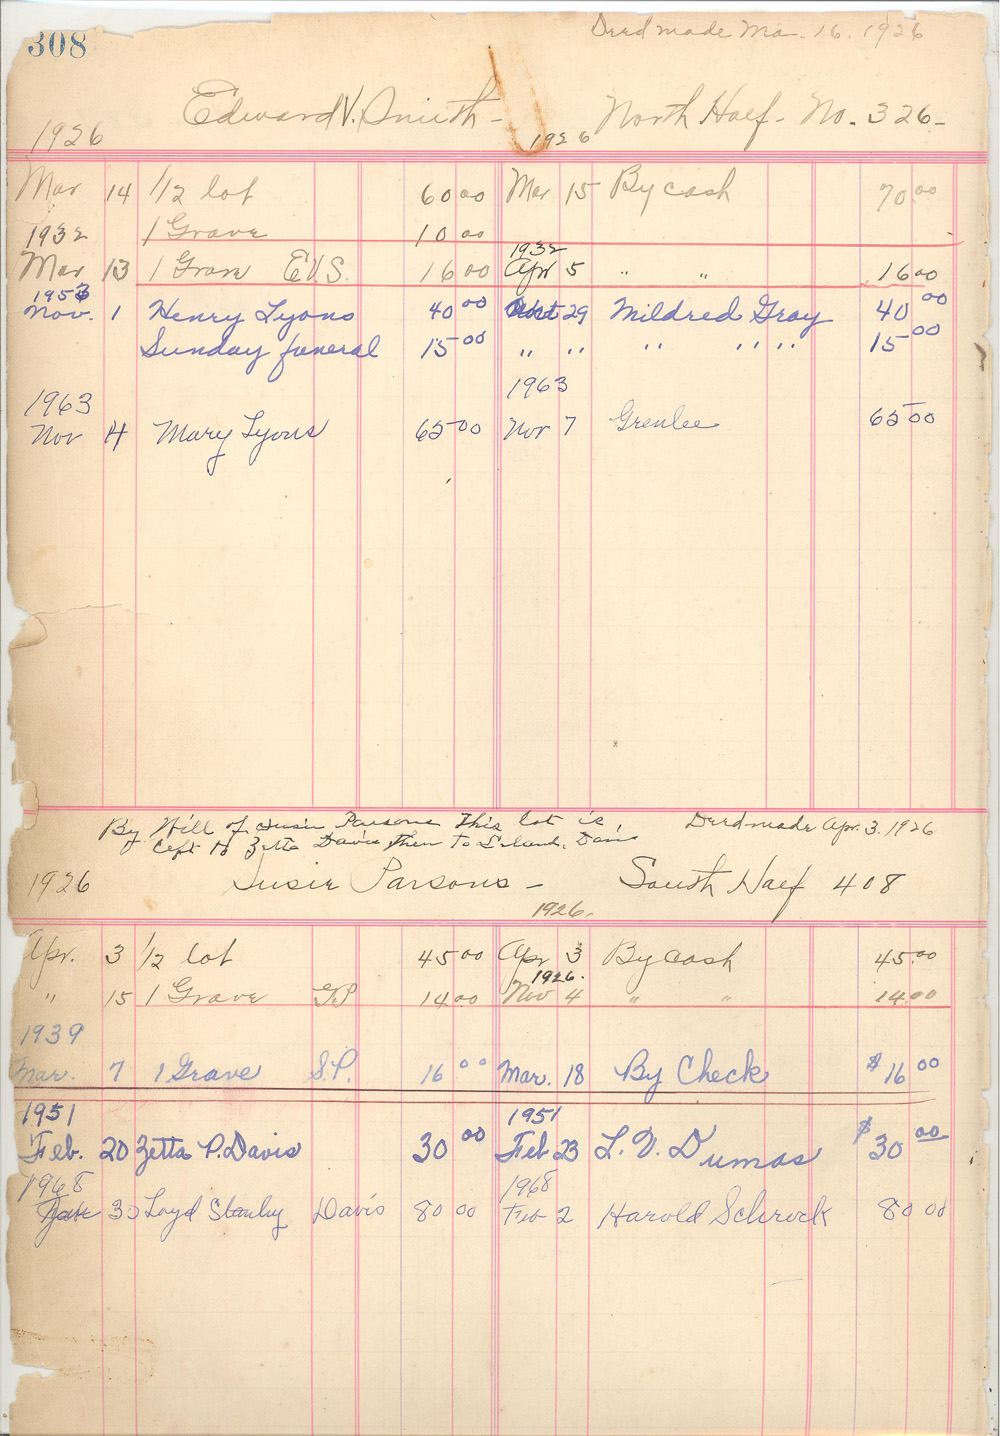 308
Deed made Mar. 16. 1926
Edward V. Smith - North Half - No. 326 -
1926 1926
Mar 14 1/2 lot 60 00 Mar 15 By cash 70 00
1932 1 Grave 10 00
1932
Mar 13 1 Grave E.V.S. 16 00 Apr 5 " " 16 00
1953
Nov. 1 Henry Lyons 40 00 29 Mildred Gray 40 00
Sunday funeral 15 00 " " " " " " 15 00
1963 1963
Nov 4 Mary Lyons 65 00 Nov 7 Grenlee 65 00
By Will of Susie Parsons This lot is, Deed made Apr. 3. 1926
left to Zetta Davis then to Leland. Davis
1926 Susie Parsons - South Half 408
1926.
Apr. 3 1/2 lot 45 00 Apr 3 By cash 45.00
1926.
" 15 1 Grave G.P 14 00 Nov 4 " " 14.00
1939
Mar. 7 1 Grave S.P. 16 00 Mar. 18 By Check $16 00
1951 1951
Feb. 20 Zetta P. Davis 30 00 Feb 23 L. V. Dumas $30 00
1968 1968
30 Loyd Stanley Davis 80 00 Feb 2 Harold Schrock 80 00